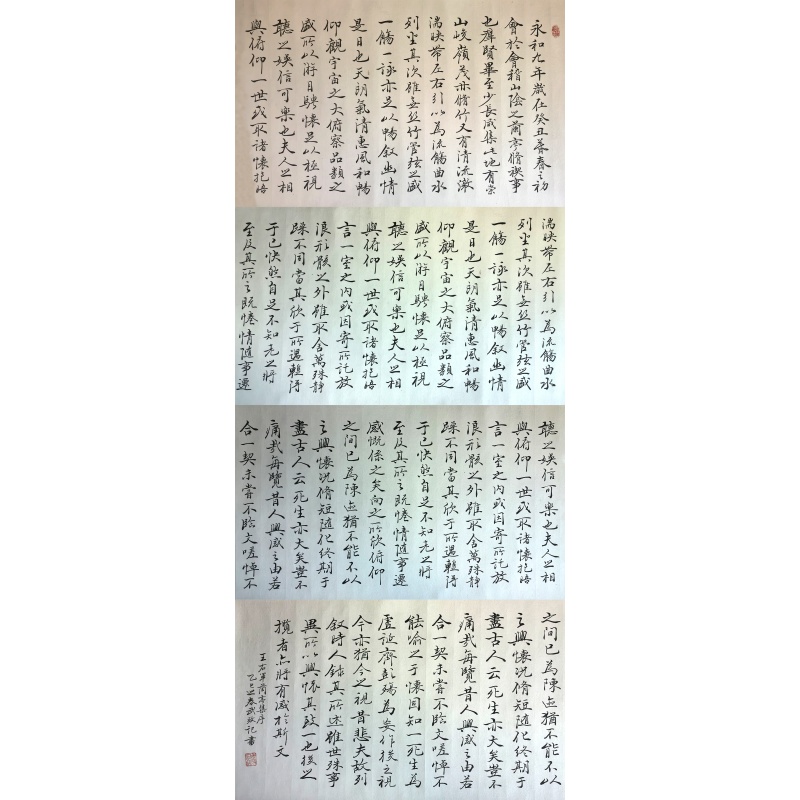 永和九年歲在癸丑暮春之初
會於會稽山陰之蘭亭脩稧事
也羣賢畢至少長咸集此地有崇
山峻嶺茂林脩竹又有清流激
湍映帶左右引以為流觴曲水
列坐其次雖無絲竹管弦之盛
一觴一詠亦足以暢叙幽情
是日也天朗氣清惠風和暢
仰觀宇宙之大俯察品類之
盛所以遊目騁懷足以極視
聽之娛信可樂也夫人之相
與俯仰一世或取諸懷抱悟
湍映帶左右引以為流觴曲水
列坐其次雖無絲竹管弦之盛
一觴一詠亦足以暢叙幽情
是日也天朗氣清惠風和暢
仰觀宇宙之大俯察品類之
盛所以遊目騁懷足以極視
聽之娛信可樂也夫人之相
與俯仰一世或取諸懷抱悟
言一室之內或因寄所託放
浪形骸之外雖取舍萬殊靜
躁不同當其欣于所遇輒得
于己快然自足不知老之將
至及其所之既惓情隨事遷
聽之娛信可樂也夫人之相
與俯仰一世或取諸懷抱悟
言一室之內或因寄所託放
浪形骸之外雖取舍萬殊靜
躁不同當其欣于所遇輒得
于己快然自足不知老之將
至及其所之既惓情隨事遷
感慨係之矣向之所欣俯仰
之間已為陳迹猶不能不以
之興懷況脩短隨化終期于
盡古人云死生亦大矣豈不
痛哉每覽昔人興感之由若
合一契未嘗不臨文嗟悼不
之間已為陳迹猶不能不以
之興懷況脩短隨化終期于
盡古人云死生亦大矣豈不
痛哉每覽昔人興感之由若
合一契未嘗不臨文嗟悼不
能喻之于懷固知一死生為
虛誕齊彭殤為妄作後之視
今亦猶今之視昔悲夫故列
叙時人錄其所述雖世殊事
異所以興懷其致一也後之
攬者亦將有感於斯文
王右軍蘭亭集序